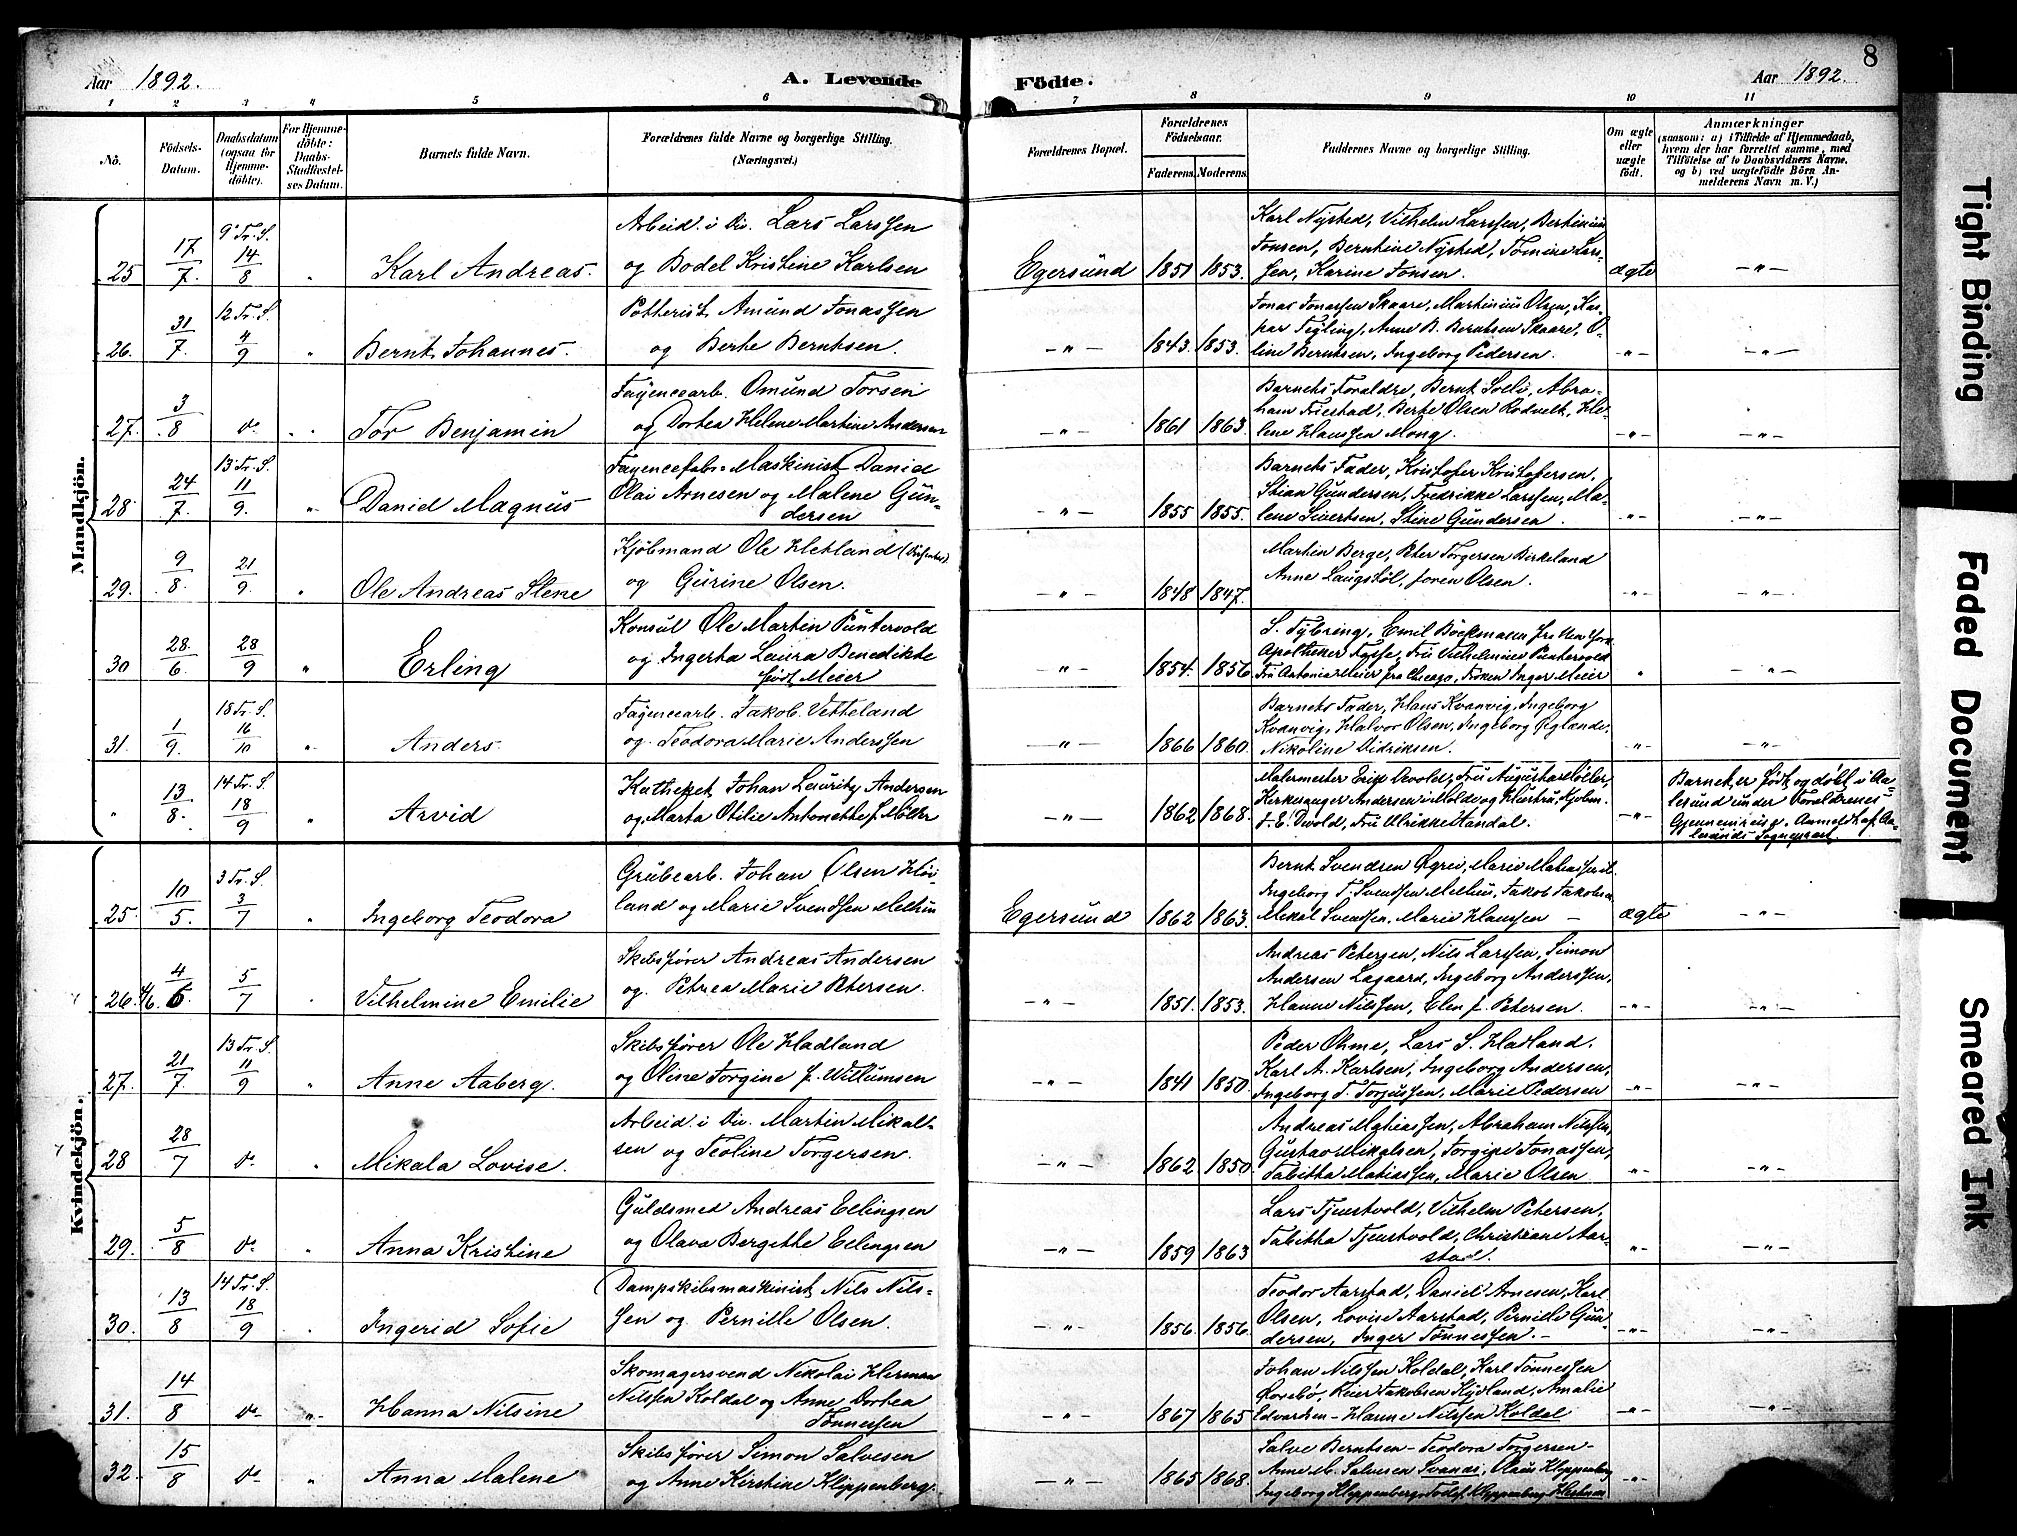 8
Aar 1892.
A. Levende Födte.
Aar 1892.
1 2 3 4 5 6 7 8 9 10 11
No.
Födsels-Datum.
Daabsdatum (ogsaa for Hjemme-döbte).
For Hjemme-döbte: Daabs-Stadfæstel-ses Datum.
Barnets fulde Navn.
Forældrenes fulde Navne og borgerlige Stilling.
(Næringsvei.)
Forældrenes Bopæl.
Forældrenes Födselsaar.
Faderens. Moderens.
Faddernes Navne og borgerlige Stilling.
Om ægte eller uægte födt.
Anmærkninger
(saasom: a) i Tilfælde af Hjemmedaab, hvem der har forrettet samme, med Tilföielse af to Daabsvidners Navne, og b) ved uægtefödte Börn Anmelderens Navn m. V.)
Mandkjön.
25 17/7. 9' Tr. S. 14/8 " Karl Andreas.
Arbeid. i Div. Lars Larssen
og Bodel Kristine Karlsen
Egersund 1851 1853.
Karl Nysted, Vilhelm Larssen, Bertinius
Jonsen, Berntine Nysted, Tomine Lars-
sen, Karine Jonsen.
ægte — " —
26. 31/7. 12 Tr. S. 4/9 " Bernt Johannes.
Potterist Amund Jonassen
og Berte Berntsen.
— " — 1843. 1853.
Jonas Jonassen Skaare, Martinius Olsen, Kas-
par Tegling, Anne B. Berntsen Skaare, O-
line Berntsen, Ingeborg Pedersen.
— " — — " —
27. 3/8 do " Tor Benjamin
Fayencearb. Omund Torsen
og Dortea Helene Martine Andersen
— " — 1861 1863.
Barnets Foraldre, Bernt Soeli, Abra-
ham Friestad, Berte Olsen Rodvelt, He-
lene Hanssen Mong.
— " — — " —
28. 24/7. 13 Tr. S. 11/9. " Daniel Magnus
Fayencefabr. Maskinist Daniel
Olai Arnesen og Malene Gun-
dersen
— " — 1855 1855.
Barnets Fader, Kristofer Kristofersen,
Stian Gundersen, Fredrikke Larssen, Ma-
lene Sivertsen, Stine Gundersen.
— " — — " —
29. 9/8. 21/9. " Ole Andreas Stene
Kjöbmand Ole Hetland
og Gurine Olsen.
— " — 1848 1847.
Martin Berge, Peter Torgersen Birkeland
Anne Laugstöl, Joren Olsen.
— " — — " —
30 28/6. 28/9 " Erling
Konsul Ole Martin Puntervold
og Ingerta Laura Benedikte
født Meier
— " — 1854. 1856.
S. Tybring, Emil Böckmann fra New York
Apotheker Fasse, Fru Vilhelmine Puntervold
Fru Antonia Meier fra Chicago, Frøken Inger Meier
" — " —
31. 1/9. 18 Tr. S. 16/10 " Anders.
Fayencearb. Jakob Vetteland
og Teodora Marie Anderssen
— " — 1866 1860.
Barnets Fader, Hans Kvanvig, Ingeborg
Kvanvig, Halvor Olsen, Ingeborg Øglænde,
Nikoline Didriksen.
— " — — " —
" 13/8. 14 Tr. S. 18/9 " Arvid
Katheket Johan Lauritz Andersen
og Marta Otilie Antonette f. Möller
— " — 1862 1868.
Malermester Erik Devold, Fru Augusta Möller,
Kirkesanger Andersen i Molde og Hustru, Kjøbm.
J. E. Devold, Fru Ulrikke Handal.
— " —
Barnet er født og døbt i Aa-
lesund under Forældrenes
Anmeldt af Aa-
lesunds Sogneprest.
Kvindekjön.
25. 10/5. 3 Tr. S. 3/7 " Ingeborg Teodora
Grubearb. Johan Olsen Høi-
land og Marie Svendsen Melhus
Egersund 1862 1863.
Bernt Svendsen Øgrei, Marie Matiassen
Ingeborg T. Svendsen Melhus, Jakob Jakobsen
Mikal Svensen, Marie Hanssen —
ægte — " —
26. 4/6. 4/6. 5/7 " Vilhelmine Emilie
Skibsfører Andreas Andersen
og Petrea Marie Petersen.
— " — 1851. 1853.
Andreas Petersen, Nils Larssen, Simon
Andersen Lagaard, Ingeborg Anderssen,
Hanne Nilssen, Elen J. Petersen.
— " — — " —
27. 21/7. 13 Tr. S. 11/9 " Anne Aaberg.
Skibsfører Ole Hadland
og Oline Torgine f. Willumsen
— " — 1841 1850.
Peder Ohme, Lars S. Hadland,
Karl A. Karlsen, Ingeborg Andersen,
Ingeborg T. Torjussen, Marie Pedersen
— " — — " —
28 28/7 do " Mikala Lovise.
Arbeid. i Div. Martin Mikal-
sen og Teoline Torgersen.
— " — 1862 1850.
Andreas Mathiassen, Abraham Nilssen,
Gustav Mikalsen, Torgine Jonassen,
Tabitha Matiassen, Marie Olsen
— " — — " —
29. 5/8 do " Anna Kristine
Guldsmed Andreas Eelingsen
og Olava Bergitte Eelingsen
— " — 1859 1863
Lars Tjenstvold, Vilhelm Petersen,
Tabitha Tjenstvold, Christiane Aar-
stad.
— " — — " —
30. 13/8 14 Tr. S. 18/9 " Ingerid Sofie
Dampskibsmaskinist Nils Nils-
sen og Pernille Olsen.
— " — 1856. 1856.
Teodor Aarstad, Daniel Arnesen, Karl
Olsen, Lovise Aarstad, Pernille Gun-
dersen, Inger Tønnessen.
— " — — " —
31. 14/8 do " Hanna Nilsine
Skomagersvend Nikolai Herman
Nilssen Koldal og Anne Dortea
Tönnessen
— " — 1867 1865
Johan Nilssen Koldal, Karl Tönnessen
Ørebø, Reier Jakobsen Hyland, Amalie
Edvardsen — Hanne Nilssen Koldal
— " — — " —
32. 15/8 do " Anna Malene
Skibsfører Simon Salvesen
og Anne Kirstine Kleppenberg.
— " — 1865 1868.
Salve Berntsen — Teodora Torgersen —
Anne M. Salvesen Svanes, Olaus Kleppenberg
Ingeborg Kleppenberg
— " —
Tight Binding
Faded Document
Smeared Ink